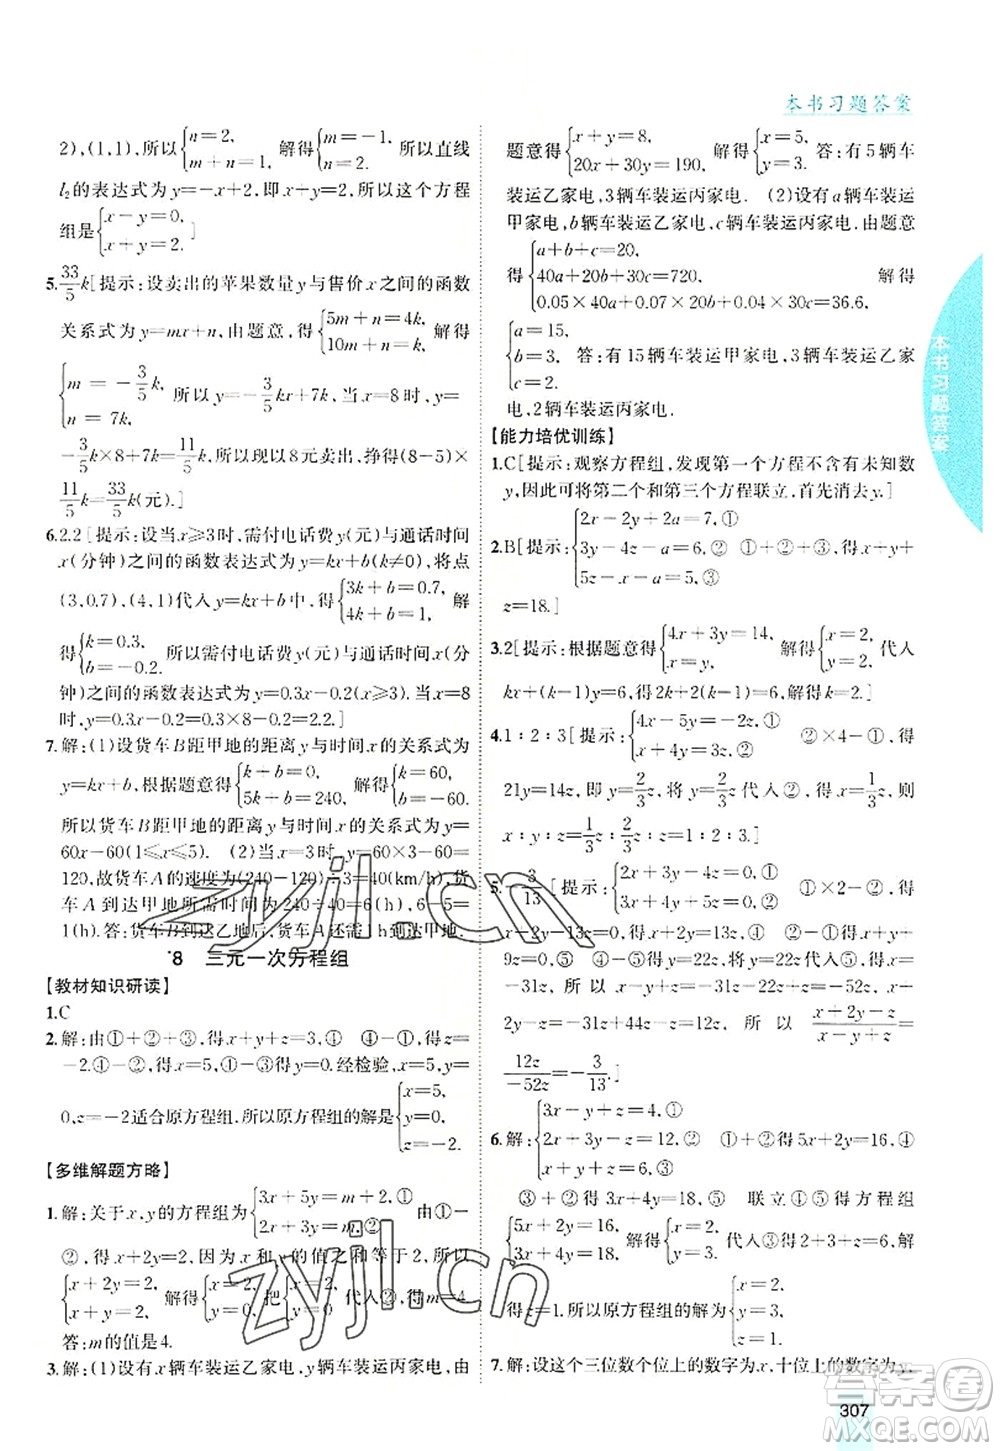 本书习题答案
2),(1,1),所以{n=2, m+n=1. 解得{m=-1, n=2. 所以直线
l₂的表达式为y=-x+2,即x+y=2,所以这个方程
组是{x-y=0, x+y=2.]
5. 33/5 k[提示:设卖出的苹果数量y与售价x之间的函数
关系式为y=mx+n,由题意,得{5m+n=4k, 10m+n=k. 解得
{m=-3/5 k, n=7k. 所以y=-3/5 kx+7k,当x=8时,y=
-3/5 k×8+7k=11/5 k,所以现以8元卖出,挣得(8-5)×
11/5 k=33/5 k(元).]
6.2.2[提示:设当x≥3时,需付电话费y(元)与通话时间
x(分钟)之间的函数表达式为y=kx+b(k≠0),将点
(3,0.7),(4,1)代入y=kx+b中,得{3k+b=0.7, 4k+b=1. 解
得{k=0.3, b=-0.2. 所以需付电话费y(元)与通话时间x(分
钟)之间的函数表达式为y=0.3x-0.2(x≥3).当x=8
时,y=0.3x-0.2=0.3×8-0.2=2.2.]
7.解:(1)设货车B距甲地的距离y与时间x的关系式为
y=kx+b,根据题意得{k+b=0, 5k+b=240, 解得{k=60, b=-60.
所以货车B距甲地的距离y与时间x的关系式为y=
60x-60(1≤x≤5). (2)当x=3时,y=60×3-60=
120,故货车A的速度为(240-120)÷3=40(km/h),货
车A到达甲地所需时间为240÷40=6(h),6-5=
1(h).答:货车B到达乙地后,货车A还需1h到达甲地.
*8 三元一次方程组
【教材知识研读】
1.C
2.解:由①+②+③,得x+y+z=3 ④ ④-①,得z=
-2,④-②,得x=5,④-③得y=0.经检验,x=5,y=
0,z=-2适合原方程组.所以原方程组的解是{x=5, y=0, z=-2.
【多维解题方略】
1.解:关于x,y的方程组为{3x+5y=m+2,① 2x+3y=m.② 由①-
②,得x+2y=2,因为x和y的值之和等于2,所以
{x+2y=2, x+y=2. 解得{x=2, y=0. 把{x=2, y=0 代入②,得m=4.
答:m的值是4.
3.解:(1)设有x辆车装运乙家电,y辆车装运丙家电,由
题意得{x+y=8, 20x+30y=190, 解得{x=5, y=3. 答:有5辆车
装运乙家电,3辆车装运丙家电. (2)设有a辆车装运
甲家电,b辆车装运乙家电,c辆车装运丙家电.由题意
得{a+b+c=20, 40a+20b+30c=720, 0.05×40a+0.07×20b+0.04×30c=36.6, 解得
{a=15, b=3, c=2. 答:有15辆车装运甲家电,3辆车装运乙家
电,2辆车装运丙家电.
【能力培优训练】
1.C[提示:观察方程组,发现第一个方程不含有未知数
y,因此可将第二个和第三个方程联立,首先消去y.]
2.B[提示:{2x-2y+a=7,① 3y-4z-a=5,② 5z-x-a=5,③ ①+②+③,得x+y+
z=18.]
3.2[提示:根据题意得{4x+3y=14, x=y, 解得{x=2, y=2. 代入
kx+(k-1)y=6,得2k+2(k-1)=6,解得k=2.]
4.1∶2∶3[提示:{4x-5y=-2z,① x+4y=3z,② ②×4-①,得
21y=14z,解得y=2/3 z,把y=2/3 z代入②,得x=1/3 z,则
x∶y∶z=1/3 z∶2/3 z∶z=1∶2∶3.]
5.-3/13[提示:{2x+3y+z=0,① x+2y-4z=0,② ②×2-①,得y-
9z=0,即y=9z,①×2-②×3得x+14z=0,即x=
-14z,所以x+y-z=-14z+9z-z=-6z,
2y-z=-14z+18z-z=
x+2y-z=12z, 所以 (x+2y-z)/
12z/-52z=-3/13.]
6.解:{3x-y+z=4,① 2x+3y-z=12,② x+y+z=6,③ ①+②得5x+2y=16,④
③+②得3x+4y=18,⑤ 联立④⑤得方程组
{5x+2y=16, 3x+4y=18. 解得{x=2, y=3. 把x=2,y=3代入③得2+3+z=6,解
得z=1.所以原方程组的解为{x=2, y=3, z=1.
7.解:设这个三位数个位上的数字为x,十位上的数字为y,
本书习题答案
307
zyjl.cn
zyjl.cn
答案圈
MXQE.COM